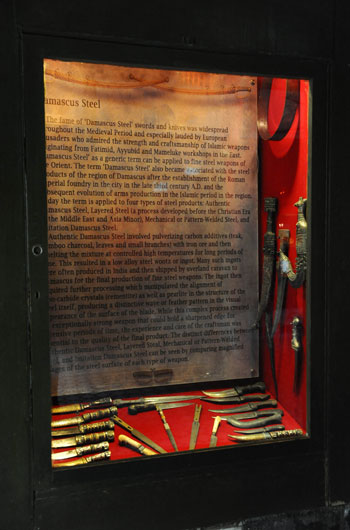 amascus Steel
The fame of 'Damascus Steel' swords and knives was widespread
oughout the Medieval Period and especially lauded by European
usaders who admired the strength and craftsmanship of Islamic weapons
ginating from Fatimid, Ayyubid and Mameluke workshops in the East.
amascus Steel' as a generic term can be applied to fine steel weapons of
e Orient. The term 'Damascus Steel' also became associated with the steel
oducts of the region of Damascus after the establishment of the Roman
perial foundry in the city in the late third century A.D. and the
bsequent evolution of arms production in the Islamic period in the region.
day the term is applied to four types of steel products: Authentic
mascus Steel, Layered Steel (a process developed before the Christian Era
the Middle East and Asia Minor), Mechanical or Pattern-Welded Steel, and
itation Damascus Steel.
Authentic Damascus Steel involved pulverizing carbon additives (teak,
mboo charcoal, leaves and small branches) with iron ore and then
elting the mixture at controlled high temperatures for long periods of
me. This resulted in a low alloy steel wootz or ingot. Many such ingots
ere often produced in India and then shipped by overland caravan to
mascus for the final production of fine steel weapons. The ingot then
quired further processing which manipulated the alignment of
carbide crystals (cementite) as well as pearlite in the structure of the
eel itself, producing a distinctive water or feather pattern in the visual
pearance of the surface of the blade. While this complex process created
exceptionally strong weapon that could hold a sharpened edge for
tensive periods of time, the experience and care of the craftsman was
sential to the quality of the final product. The distinct differences between
thentic Damascus Steel, Layered Steel, Mechanical or Pattern-Welded
and Imitation Damascus Steel can be seen by comparing magnified
ages of the steel surface of each type of weapon.